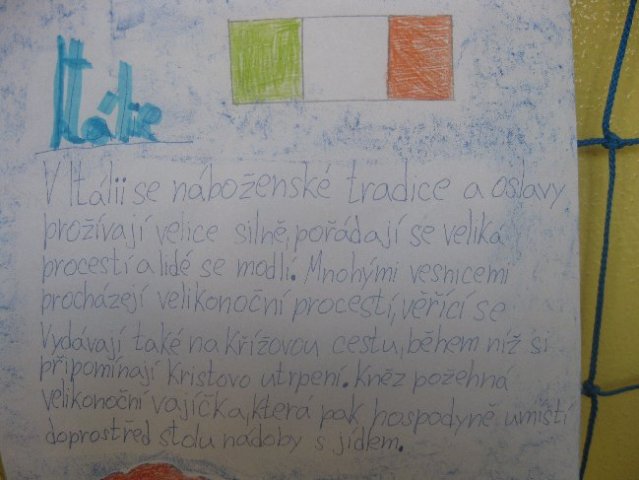 Itálie
V Itálii se náboženské tradice a oslavy
prožívají velice silně, pořádají se veliká
procestí a lidé se modlí. Mnohými vesnicemi
procházejí velikonoční procestí, věřící se
vydávají také na křížovou cestu, během níž si
připomínají Kristovo utrpení. Kněz požehná
velikonoční vajíčka, která pak hospodyně umístí
doprostřed stolu nádoby s jídlem.